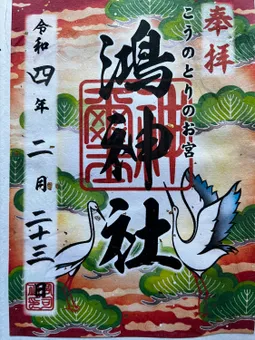 奉拝
こうのとりのお宮
鴻神社
令和四年二月二十三日